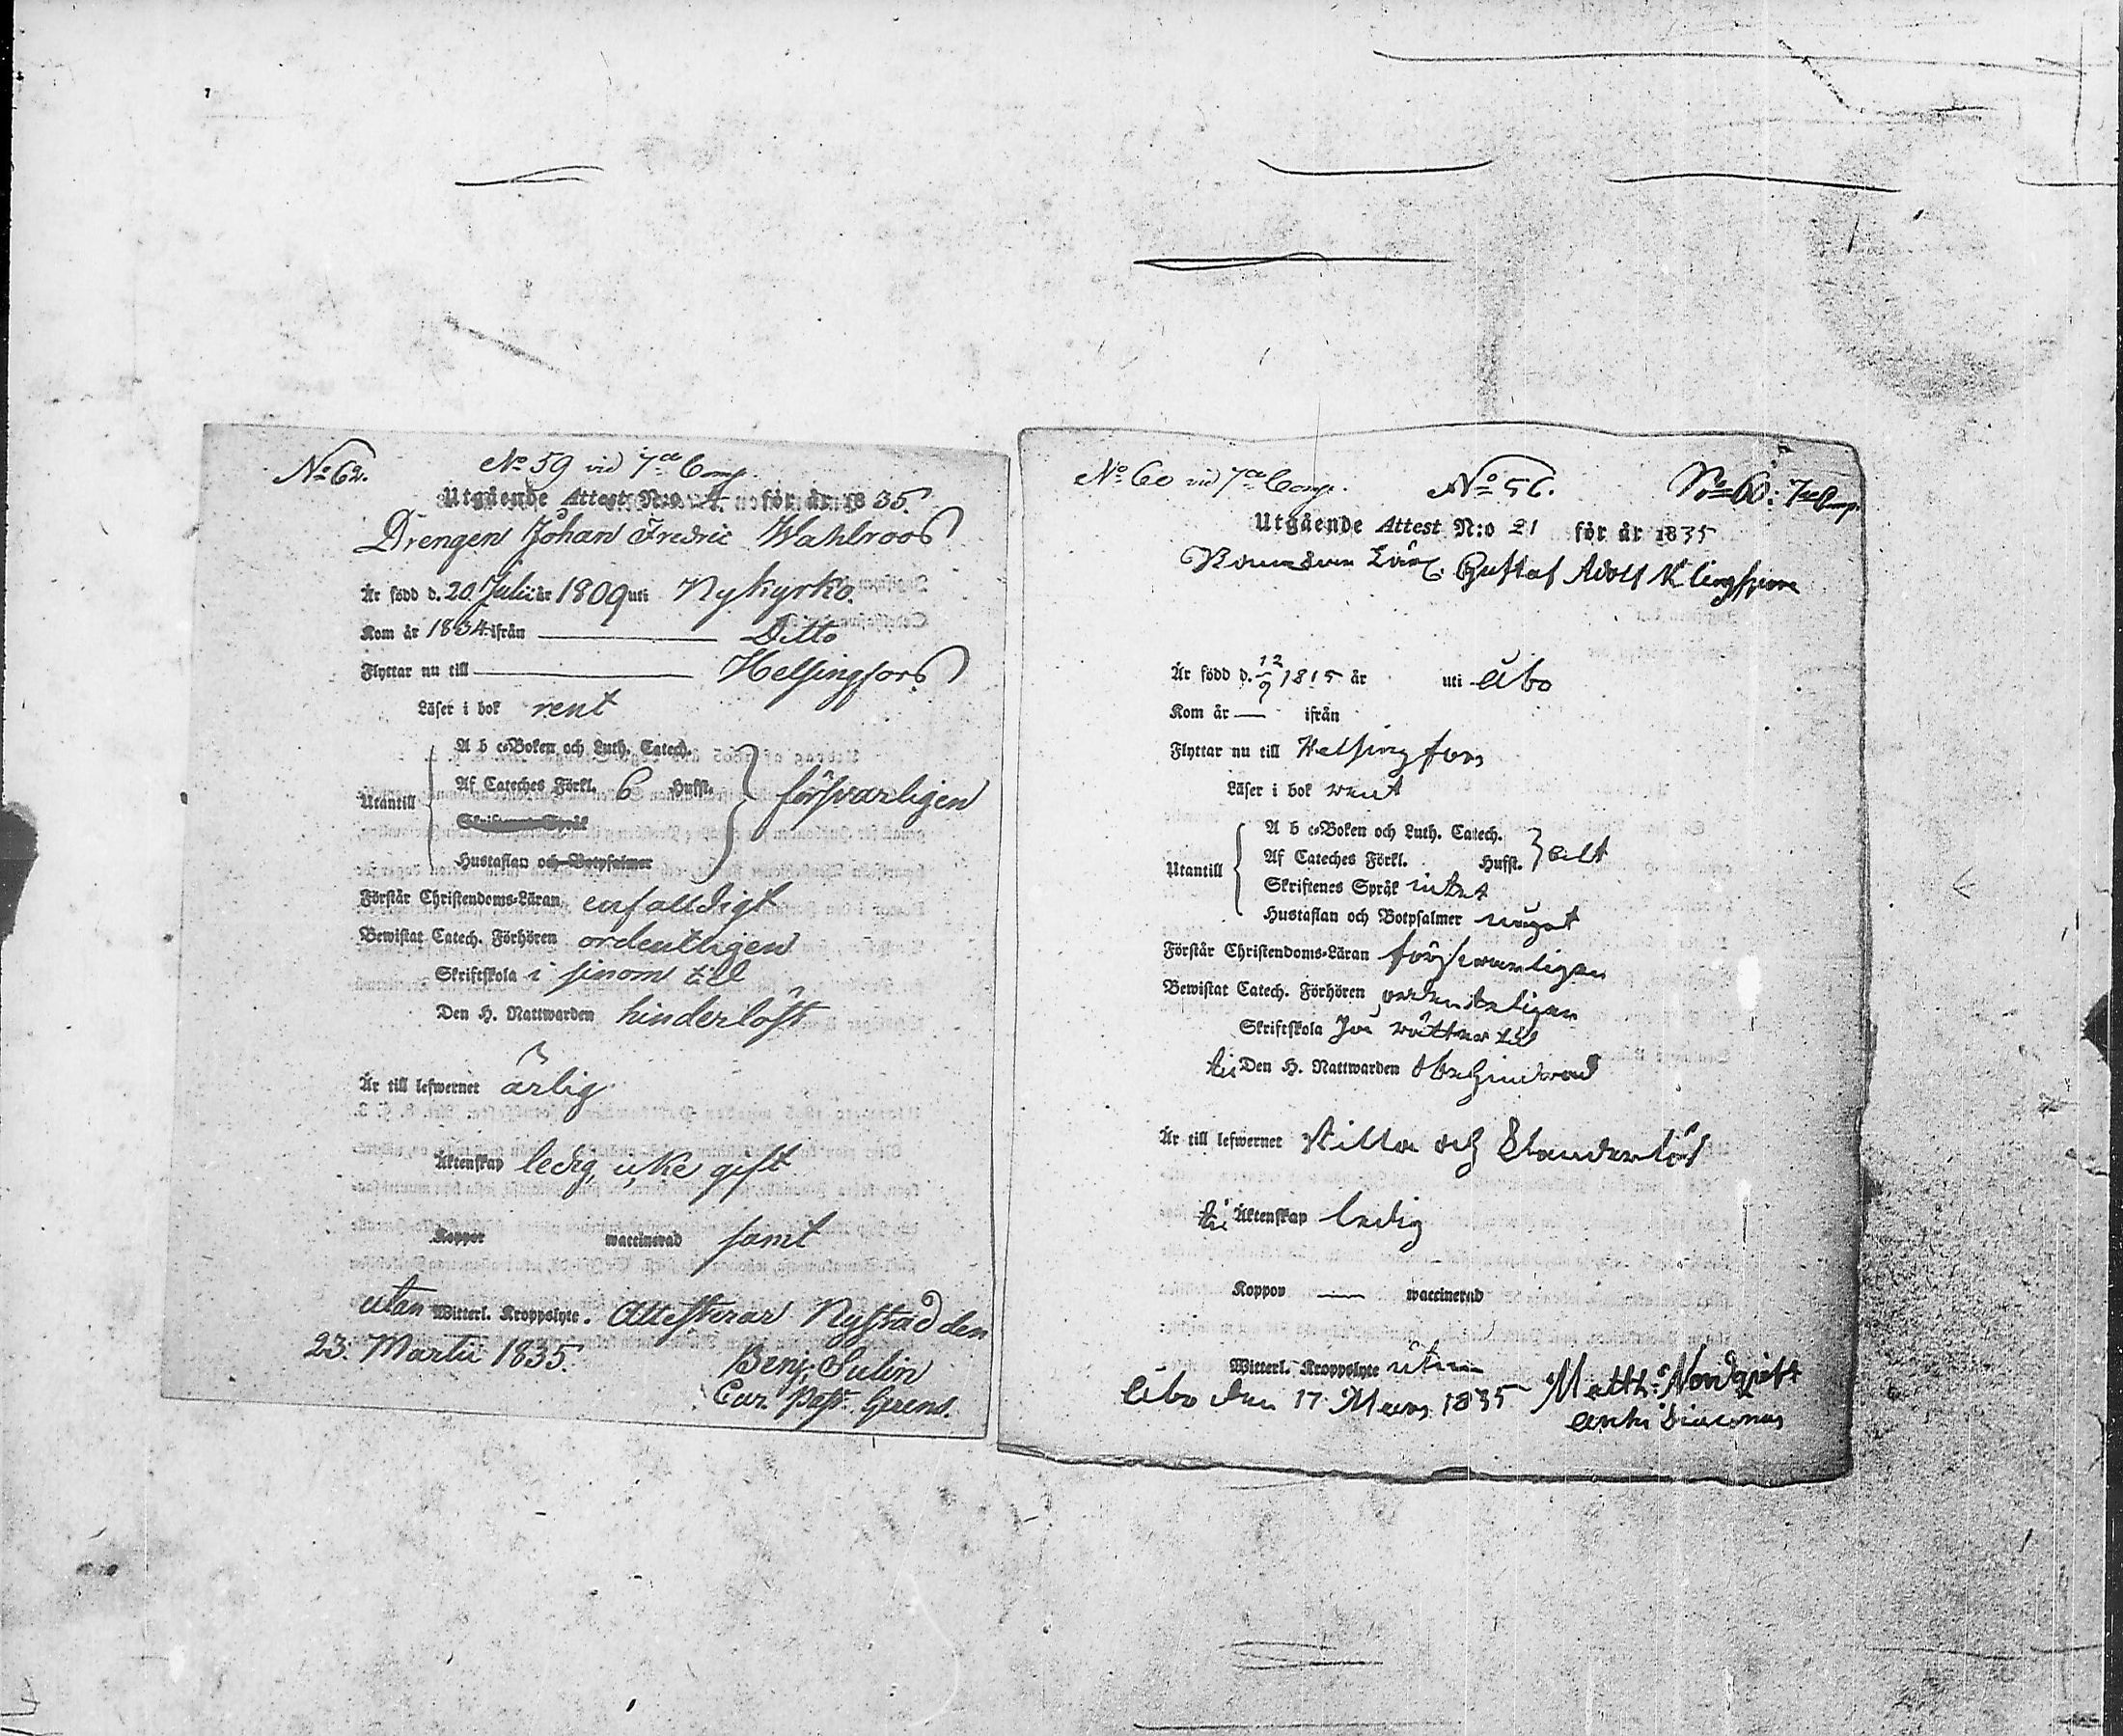 No 62.
No 59 vid 7de Comp.
Utgående Attest N:o 4. för år 1835.
Drengen Johan Fredric Wahlroos
Är född d. 20 Julii år 1809 uti Nykyrko.
Kom år 1834 ifrån Ditto
Flyttar nu till Helsingfors
Läser i bok rent
A b c-Boken och Luth. Catech.
Utantill Af Cateches Förkl. 6 Hufst. försvarligen
Skriftenes Språk
Hustaflan och Botpsalmer
Förstår Christendoms-Läran enfalldigt
Bewistat Catech. Förhören ordentligen
Skriftskola i sinom tid
Den H. Nattwarden hinderlöst
Är till lefwernet ärlig
Äktenskap ledig, icke gift
Koppor waccinerad samt
utan Witterl. Kroppslyte. Attesterar Nystad den
23. Martii 1835.
Benj. Sulin
Cur. Past. Gerens.
No 60 vid 7de Comp.
No 56.
No 60: 7de Comp.
Utgående Attest N:o 21 för år 1835
Gustaf Adolf Klingspom
Är född d. 12/9 1815 år uti Åbo
Kom år — ifrån
Flyttar nu till Helsingfors
Läser i bok rent
A b c-Boken och Luth. Catech.
Utantill Af Cateches Förkl. Hufst. allt
Skriftenes Språk intet
Hustaflan och Botpsalmer något
Förstår Christendoms-Läran försvarligen
Bewistat Catech. Förhören ordenteligen
Skriftskola på rättan tid
till Den H. Nattwarden obehindrad
Är till lefwernet stilla och klanderlös
till Äktenskap ledig
Koppor — waccinerad
Witterl. Kroppslyte utan
Åbo den 17 Mars 1835 Matth. Nordqvist
Archi Diaconus